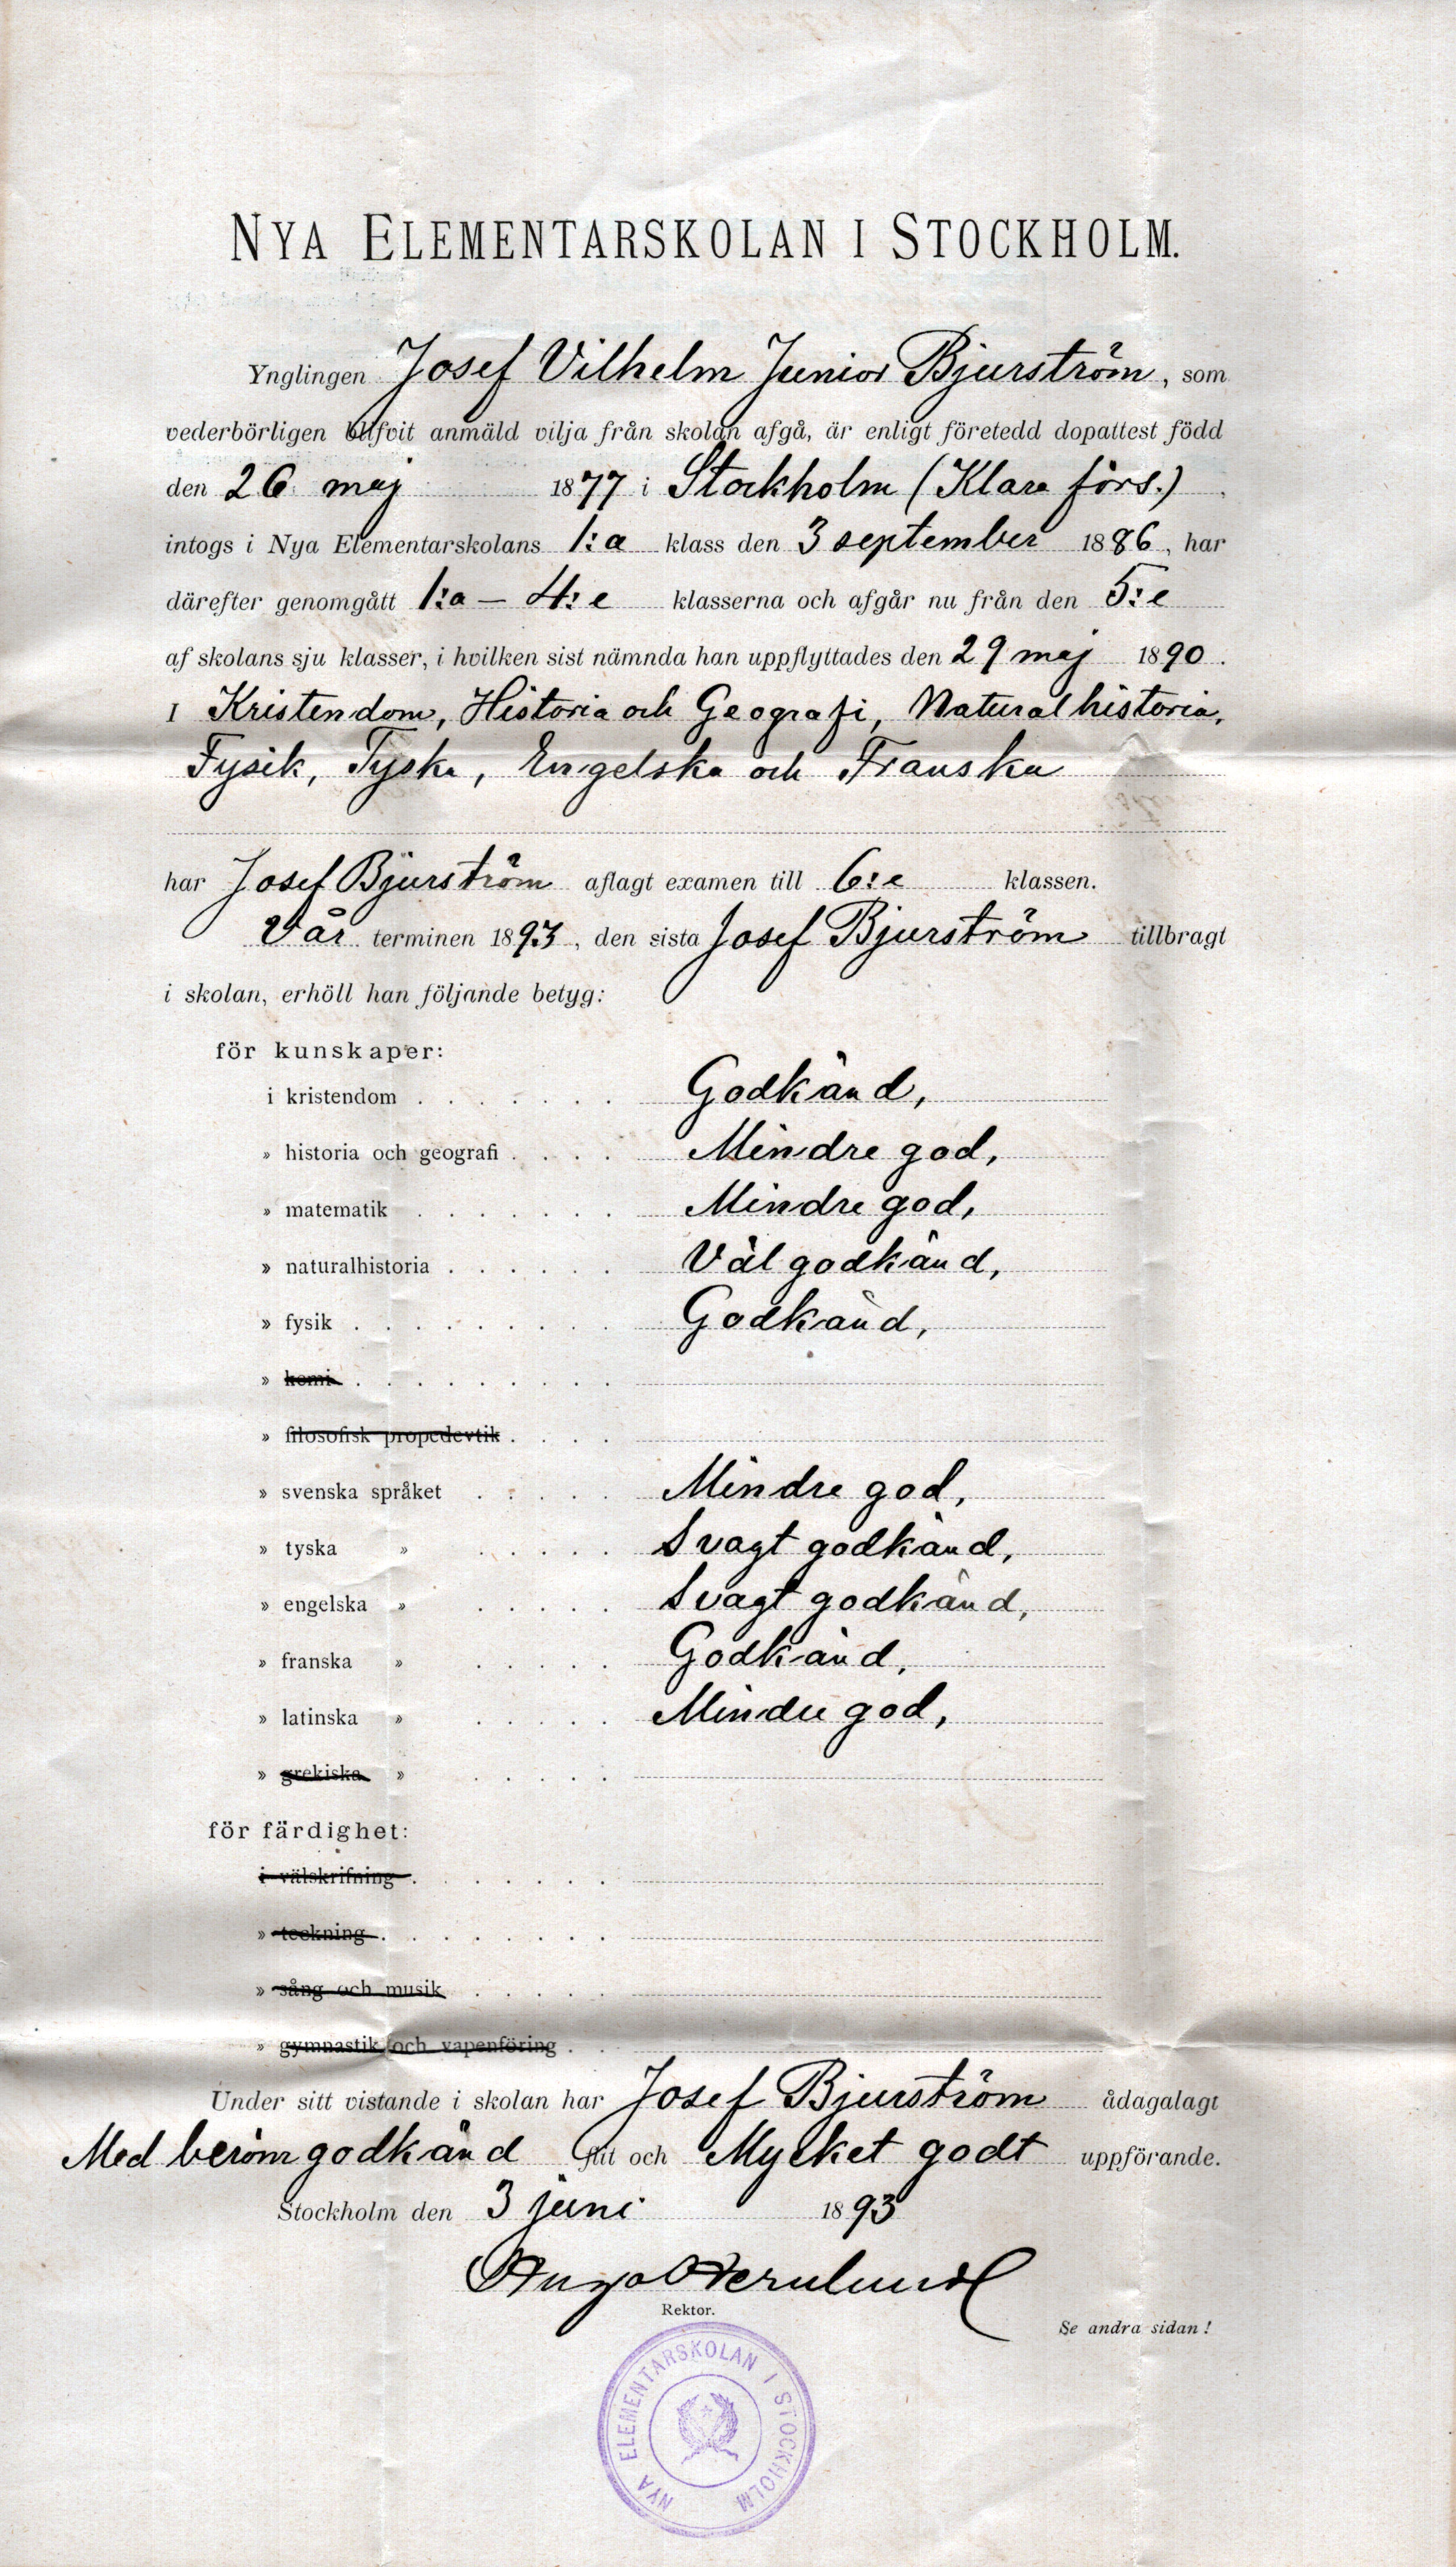 NYA ELEMENTARSKOLAN I STOCKHOLM.
Ynglingen Josef Vilhelm Junior Bjurström, som
vederbörligen blifvit anmäld vilja från skolan afgå, är enligt företedd dopattest född
den 26 maj 1877 i Stockholm (Klara förs.),
intogs i Nya Elementarskolans 1:a klass den 3 september 1886, har
därefter genomgått 1:a – 4:e klasserna och afgår nu från den 5:e
af skolans sju klasser, i hvilken sist nämnda han uppflyttades den 29 maj 1890.
I Kristendom, Historia och Geografi, Naturalhistoria,
Fysik, Tyska, Engelska och Franska
har Josef Bjurström aflagt examen till 6:e klassen.
Vår terminen 1893, den sista Josef Bjurström tillbragt
i skolan, erhöll han följande betyg:
för kunskaper:
i kristendom . . . . . . . Godkänd,
» historia och geografi . . . . Mindre god,
» matematik . . . . . . . Mindre god,
» naturalhistoria . . . . . . Väl godkänd,
» fysik . . . . . . . . . Godkänd,
» kemi . . . . . . . . . .
» filosofisk propedevtik . . . .
» svenska språket . . . . . Mindre god,
» tyska » . . . . . Svagt godkänd,
» engelska » . . . . . Svagt godkänd,
» franska » . . . . . Godkänd,
» latinska » . . . . . Mindre god,
» grekiska » . . . . .
för färdighet:
i välskrifning . . . . . . .
» teckning . . . . . . . .
» sång och musik . . . . .
» gymnastik och vapenföring . .
Under sitt vistande i skolan har Josef Bjurström ådagalagt
Med beröm godkänd flit och Mycket godt uppförande.
Stockholm den 3 juni 1893
Hugo Hernlund
Rektor.
Se andra sidan!
NYA ELEMENTARSKOLAN I STOCKHOLM